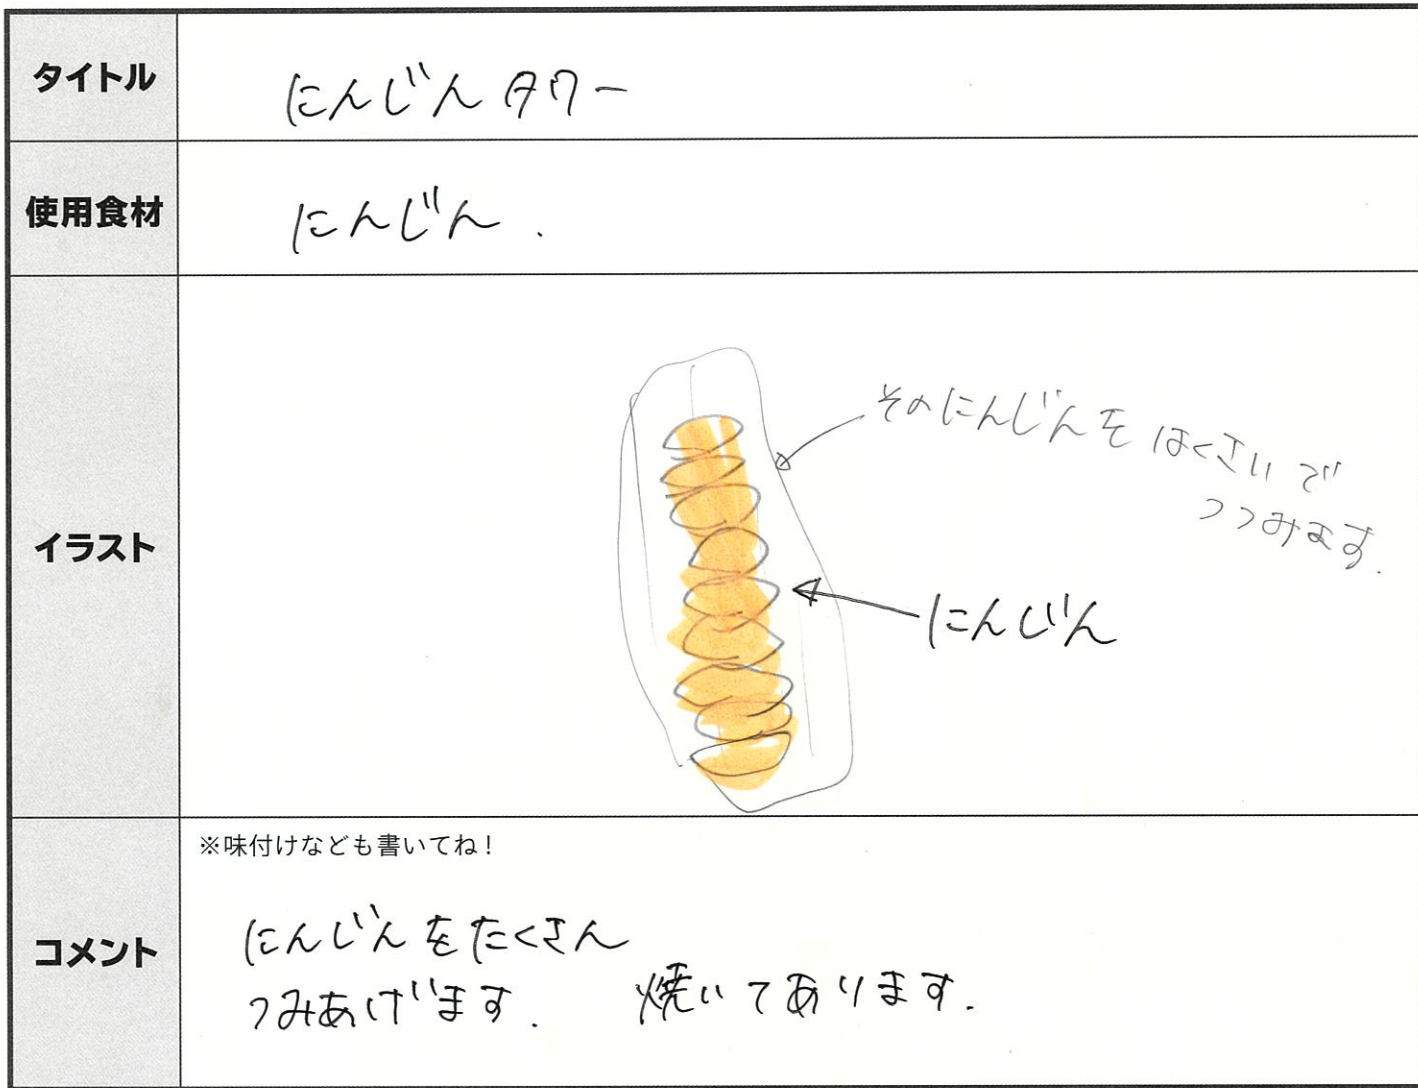 タイトル
にんじんタワー
使用食材
にんじん.
イラスト
そのにんじんをはくさいで
つつみます.
にんじん
コメント
※味付けなども書いてね!
にんじんをたくさん
つみあげます. 焼いてあります.